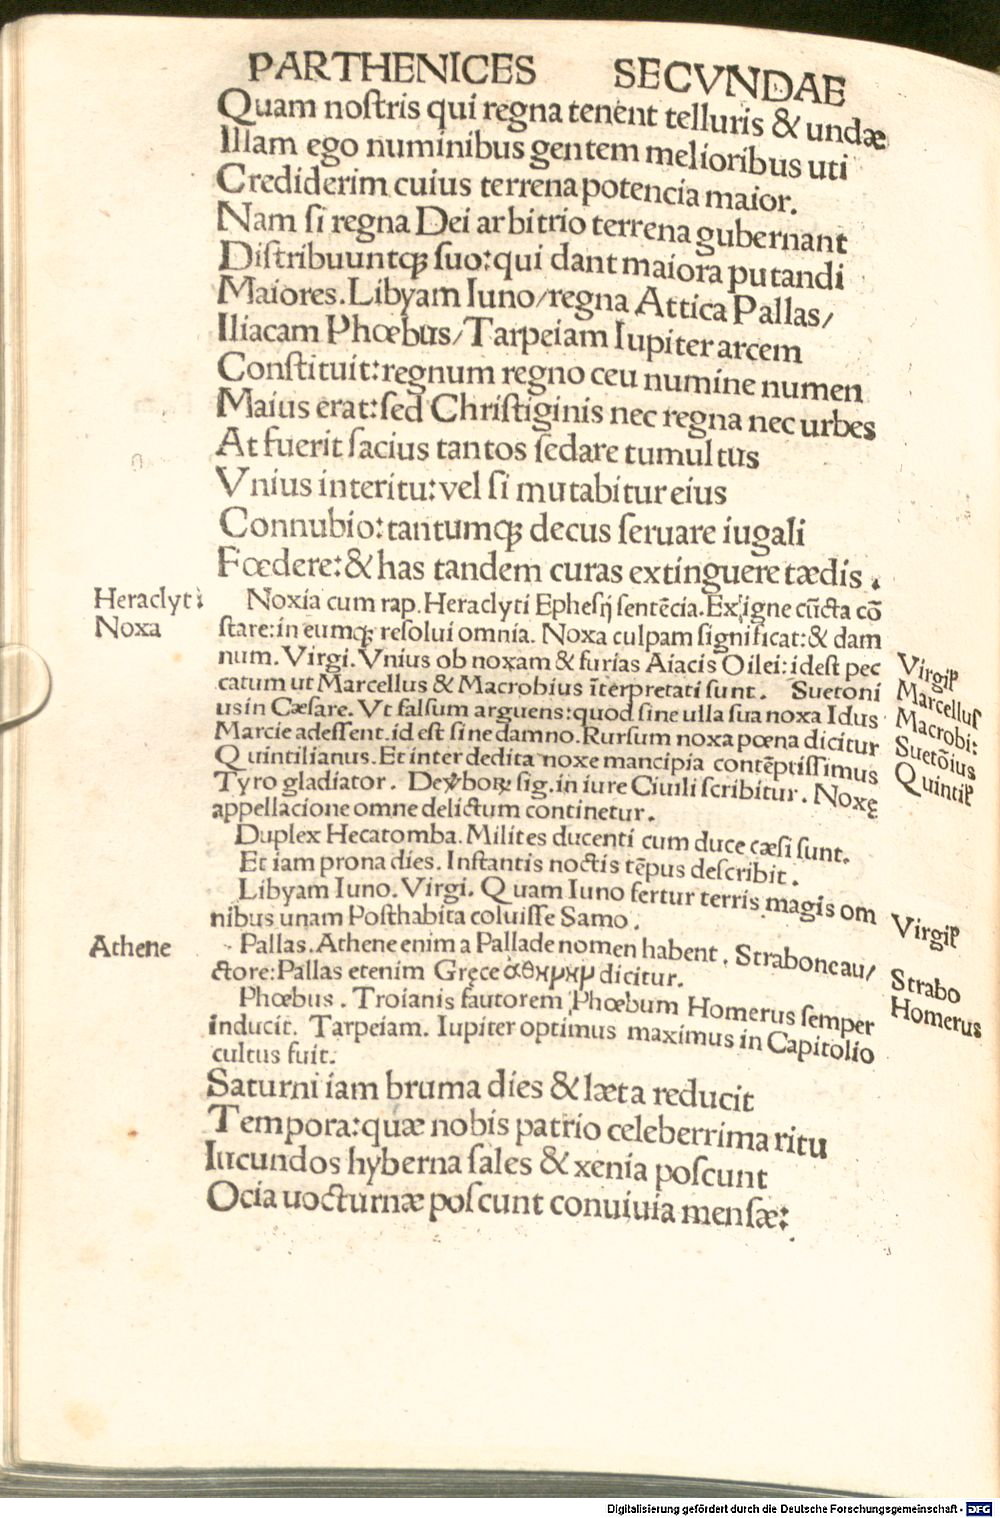 PARTHENICES SECVNDAE
Quam noſtris qui regna tenent telluris & undæ
Illam ego numinibus gentem melioribus uti
Crediderim cuius terrena potencia maior.
Nam ſi regna Dei arbitrio terrena gubernant
Diſtribuuntqꝫ ſuo: qui dant maiora putandi
Maiores. Libyam Iuno/regna Attica Pallas/
Iliacam Phœbus/Tarpeiam Iupiter arcem
Conſtituit: regnum regno ceu numine numen
Maius erat: ſed Chriſtiginis nec regna nec urbes
At fuerit ſacius tantos ſedare tumultus
Vnius interitu: vel ſi mutabitur eius
Connubio: tantumqꝫ decus ſeruare iugali
Fœdere: & has tandem curas extinguere tædis.
Heraclyti
Noxa
Noxia cum rap. Heraclyti Epheſij ſentēcia. Ex igne cūcta cō
ſtare: in eumqꝫ reſolui omnia. Noxa culpam ſignificat: & dam
num. Virgi. Vnius ob noxam & furias Aiacis Oilei: ideſt pec
catum ut Marcellus & Macrobius īterpretati ſunt. Suetoni
us in Cæſare. Vt falſum arguens: quod ſine ulla ſua noxa Idus
Marcie adeſſent. id eſt ſine damno. Rurſum noxa pœna dicitur
Quintilianus. Et inter dedita noxe mancipia contēptiſſimus
Tyro gladiator. De ꝟboꝝ ſig. in iure Ciuili ſcribitur. Noxę
appellacione omne delictum continetur.
Virgiꝉ
Marcelluſ
Macrobi:
Suetōius
Quintiꝉ
Duplex Hecatomba. Milites ducenti cum duce cæſi ſunt.
Et iam prona dies. Inſtantis noctis tēpus deſcribit.
Libyam Iuno. Virgi. Quam Iuno fertur terris magis om
nibus unam Poſthabita coluiſſe Samo.
Virgiꝉ
Athene
Pallas. Athene enim a Pallade nomen habent. Strabone au/
ctore: Pallas etenim Gręce dicitur.
Strabo
Homerus
Phœbus. Troianis fautorem Phœbum Homerus ſemper
inducit. Tarpeiam. Iupiter optimus maximus in Capitolio
cultus fuit.
Saturni iam bruma dies & læta reducit
Tempora: quæ nobis patrio celeberrima ritu
Iucundos hyberna ſales & xenia poſcunt
Ocia uocturnæ poſcunt conuiuia menſæ:
Digitalisierung gefördert durch die Deutsche Forschungsgemeinschaft - DFG